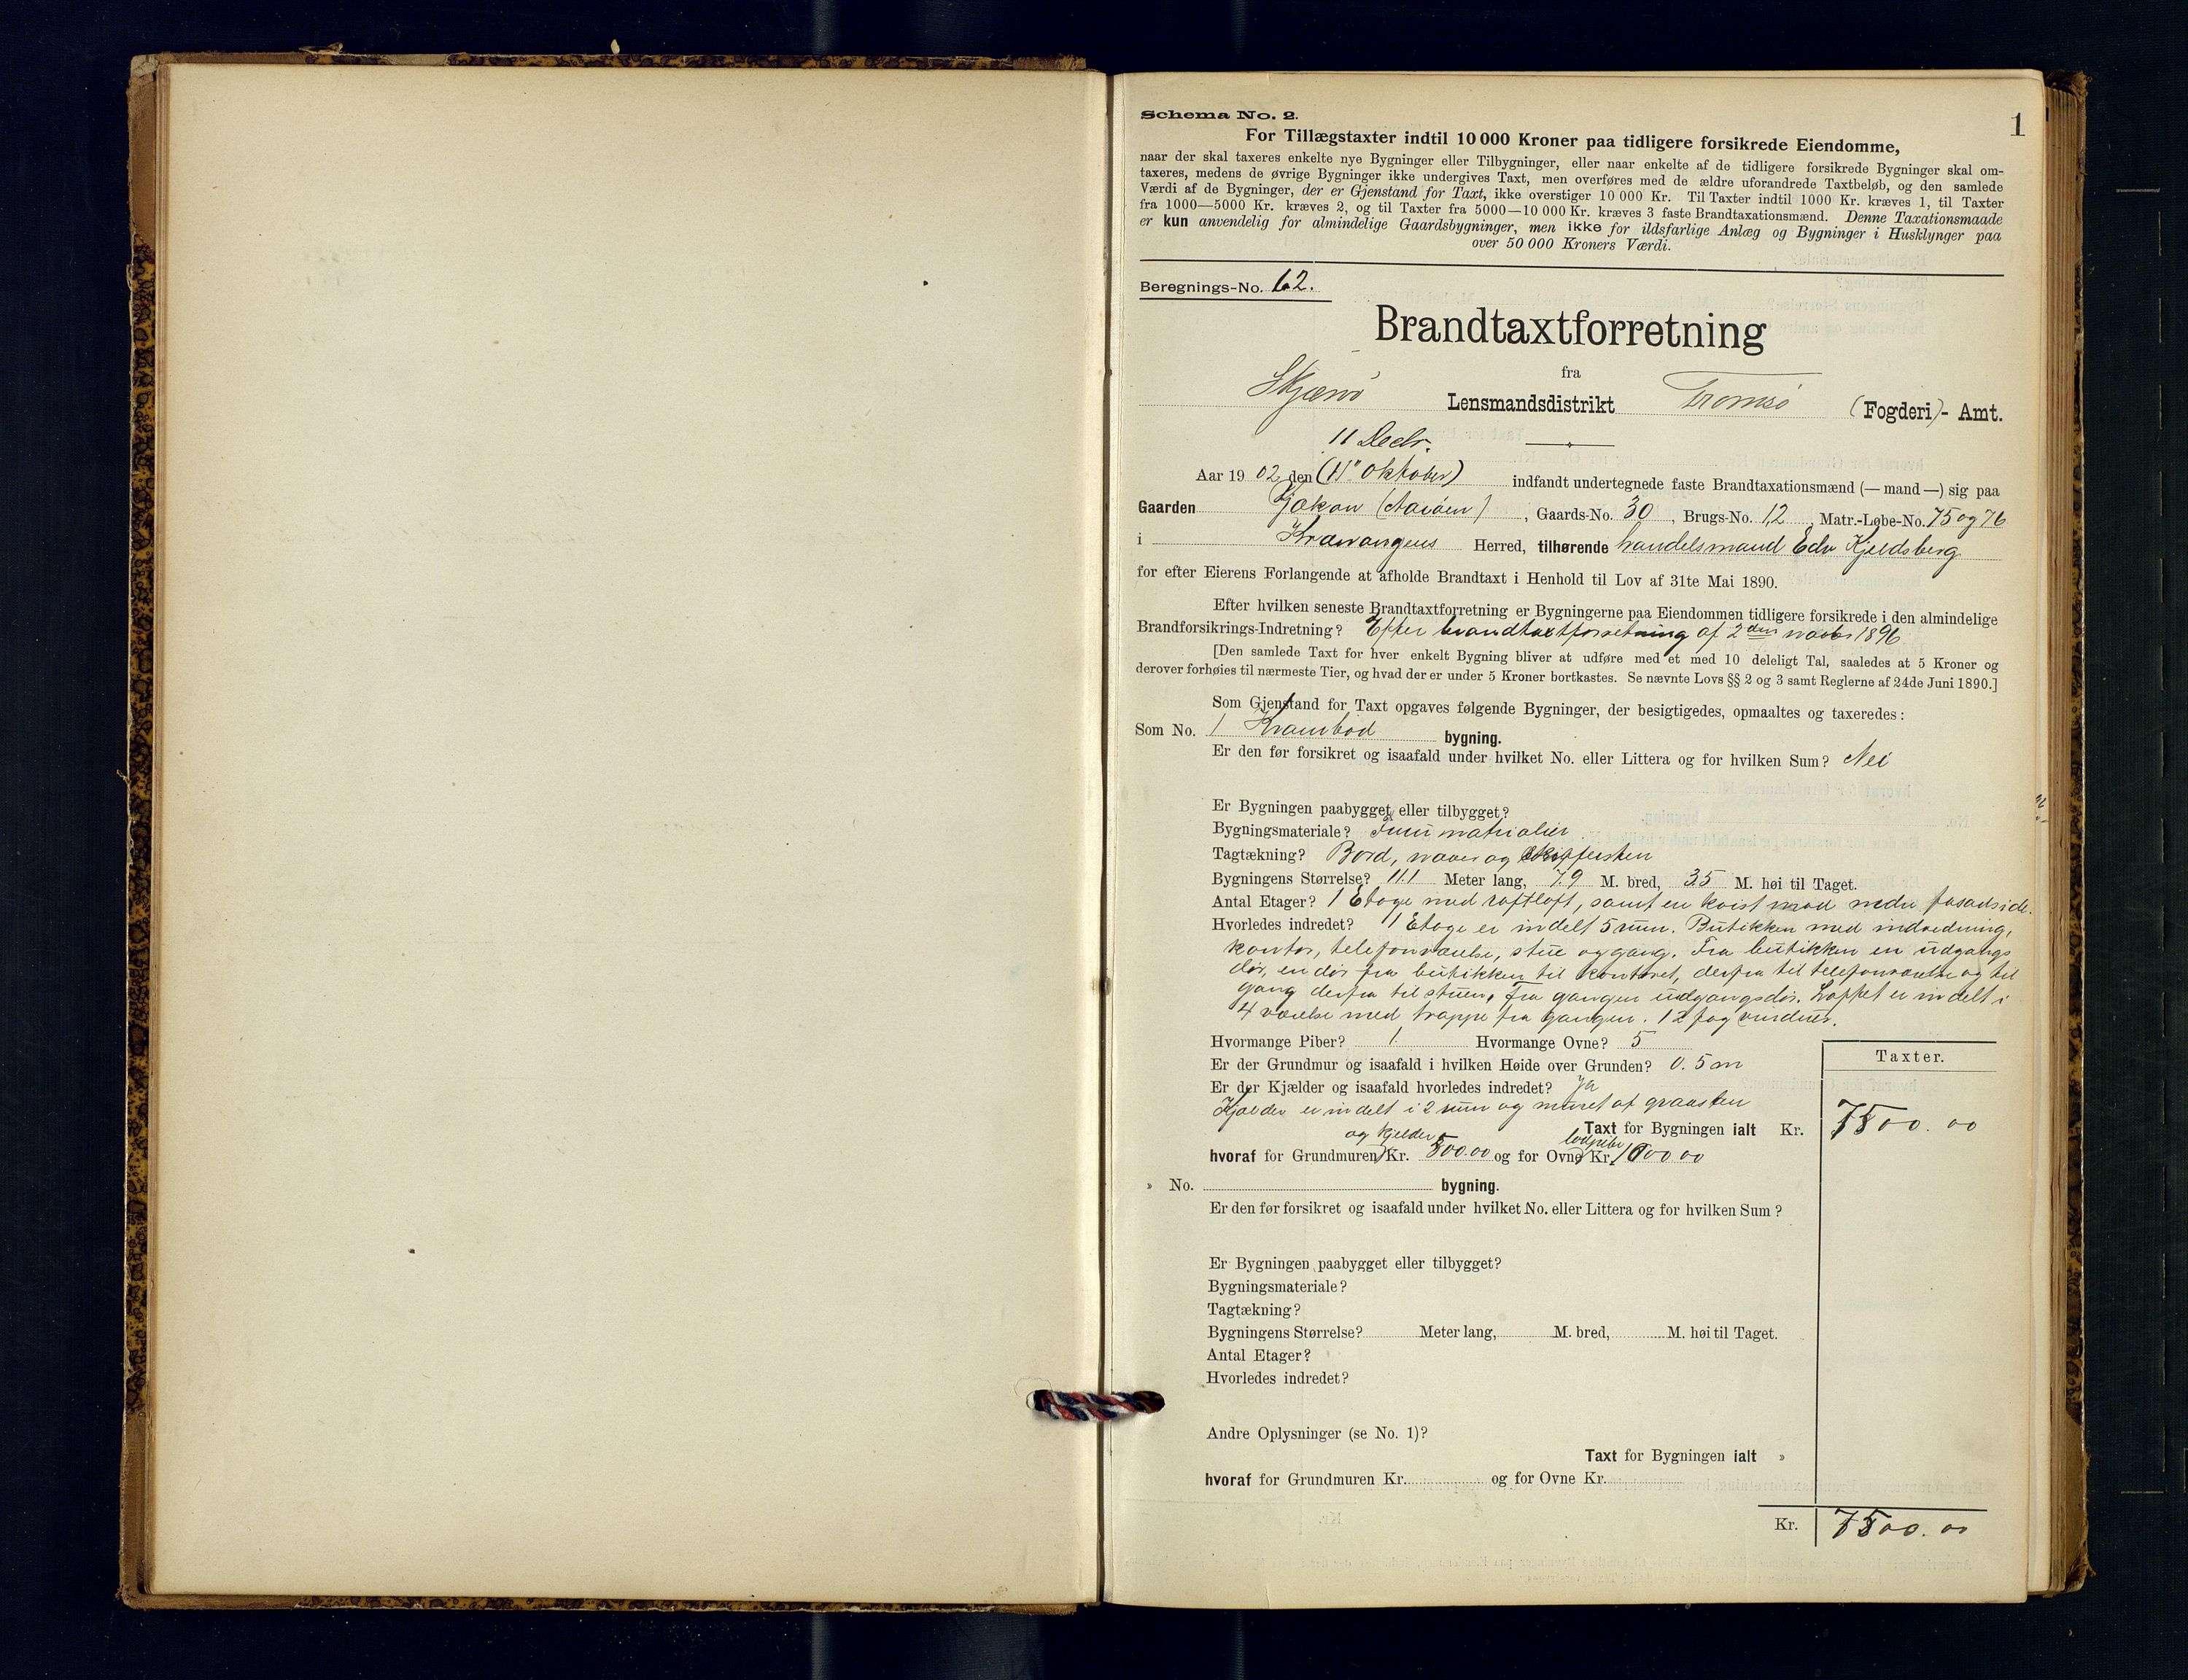 1
Schema No. 2.
For Tillægstaxter indtil 10 000 Kroner paa tidligere forsikrede Eiendomme,
naar der skal taxeres enkelte nye Bygninger eller Tilbygninger, eller naar enkelte af de tidligere forsikrede Bygninger skal om-
taxeres, medens de øvrige Bygninger ikke undergives Taxt, men overføres med de ældre uforandrede Taxtbeløb, og den samlede
Værdi af de Bygninger, der er Gjenstand for Taxt, ikke overstiger 10 000 Kr. Til Taxter indtil 1000 Kr. kræves 1, til Taxter
fra 1000—5000 Kr. kræves 2, og til Taxter fra 5000—10 000 Kr. kræves 3 faste Brandtaxationsmænd. Denne Taxationsmaade
er kun anvendelig for almindelige Gaardsbygninger, men ikke for ildsfarlige Anlæg og Bygninger i Husklynger paa
over 50 000 Kroners Værdi.
Beregnings-No. 62.
Brandtaxtforretning
fra
Skjærvø Lensmandsdistrikt Tromsø (Fogderi)- Amt.
11 Decbr.
Aar 1902 den (11te Oktober) indfandt undertegnede faste Brandtaxationsmænd (— mand —) sig paa
Gaarden Gjøkan, Gaards-No. 30, Brugs-No. 1,2, Matr.-Løbe-No. 75 og 76
i Kvænangens Herred, tilhørende handelsmand Edv Kjeldsberg
for efter Eierens Forlangende at afholde Brandtaxt i Henhold til Lov af 31te Mai 1890.
Efter hvilken seneste Brandtaxtforretning er Bygningerne paa Eiendommen tidligere forsikrede i den almindelige
Brandforsikrings-Indretning? Efter brandtaxtforretning af 2den novbr 1896
[Den samlede Taxt for hver enkelt Bygning bliver at udføre med et med 10 deleligt Tal, saaledes at 5 Kroner og
derover forhøies til nærmeste Tier, og hvad der er under 5 Kroner bortkastes. Se nævnte Lovs §§ 2 og 3 samt Reglerne af 24de Juni 1890.]
Som Gjenstand for Taxt opgaves følgende Bygninger, der besigtigedes, opmaaltes og taxeredes:
Som No. 1 Krambod bygning.
Er den før forsikret og isaafald under hvilket No. eller Littera og for hvilken Sum? Nei
Er Bygningen paabygget eller tilbygget?
Bygningsmateriale? materialier
Tagtækning? Bord, næver og skifersten
Bygningens Størrelse? 11.1 Meter lang, 7.9 M. bred, 3.5 M. høi til Taget.
Antal Etager? 1 Etage med loftloft, samt en kvist mod nedre fasadside.
Hvorledes indredet? 1 Etage er indelt 5 rum. Butikken med indredning,
kontor, telefonværelse, stue og gang. Fra butikken en udgangs
dør, en dør fra butikken til kontoret, derfra til telefonværelse og til
gang derfra til stuen, fra gangen udgangsdør. Loftet er indelt i
4 værelse med trappe fra gangen. 12 fag vinduer.
Hvormange Piber? 1. Hvormange Ovne? 5
Er der Grundmur og isaafald i hvilken Høide over Grunden? 0.5 m
Taxter.
Er der Kjælder og isaafald hvorledes indredet? Ja
Kjelder er indelt i 2 rum og muret af graasten
Taxt for Bygningen ialt Kr. 7500.00
og kjelder
hvoraf for Grundmuren Kr. 500.00 og for Ovne Kr. 00.00
» No. bygning.
Er den før forsikret og isaafald under hvilket No. eller Littera og for hvilken Sum?
Er Bygningen paabygget eller tilbygget?
Bygningsmateriale?
Tagtækning?
Bygningens Størrelse? Meter lang, M. bred, M. høi til Taget.
Antal Etager?
Hvorledes indredet?
Andre Oplysninger (se No. 1)?
Taxt for Bygningen ialt »
hvoraf for Grundmuren Kr. og for Ovne Kr.
Kr. 7500.00